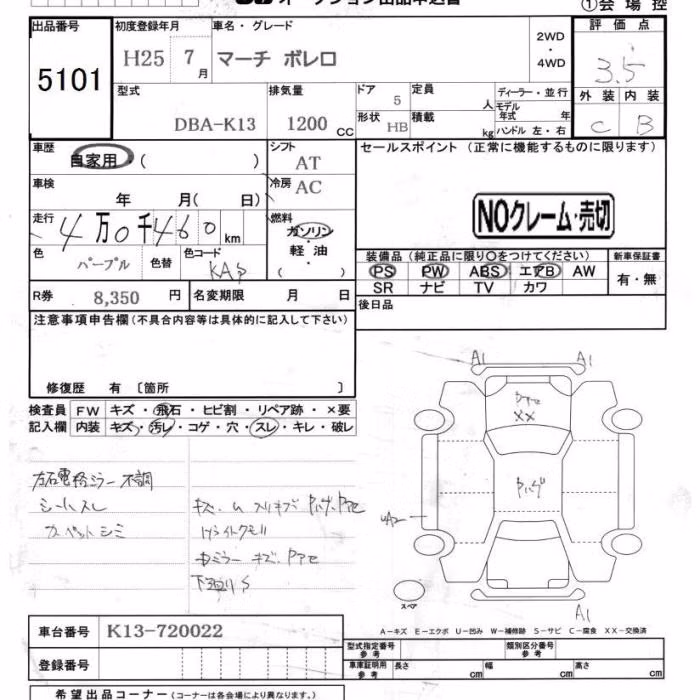 オークション出品申込書
①会場控
出品番号 初度登録年月 車名・グレード 評価点
5101 H25 7月 マーチ ボレロ 2WD・4WD 3.5
型式 排気量 ドア 定員 ディーラー・並行 外装 内装
DBA-K13 1200 CC 5 人 モデル年式 年 C B
形状 積載
HB kg ハンドル 左・右
車歴 シフト セールスポイント (正常に機能するものに限ります)
自家用・( ) AT
車検 冷房
年 月( 日) AC
NOクレーム・売切
走行 燃料
4万0千460km ガソリン・軽油
( )
色 色替 色コード
パープル KAS
装備品 (純正品に限り○をつけてください) 新車保証書
PS PW ABS エアB AW 有・無
SR ナビ TV カワ
R券 8,350 円 名変期限 月 日 後日品
注意事項申告欄 (不具合内容等は具体的に記入して下さい)
修復歴 有 〔箇所 〕
検査員 FW キズ・飛石・ヒビ割・リペア跡・×要
記入欄 内装 キズ・汚レ・コゲ・穴・スレ・キレ・破レ
A1 A1
XX
左右電格ミラー不調
シートスレ
カーペットシミ
ヘッドライトクモリ
中ミラーキズ
下廻りS
スペア
A1
車台番号 K13-720022
A－キズ E－エクボ U－凹み W－補修跡 S－サビ C－腐食 XX－交換済
型式指定番号 参考 類別区分番号 参考
登録番号 車庫証明用 参考 長さ cm 幅 cm 高さ cm
希望出品コーナー (コーナーは各会場により異なります。)